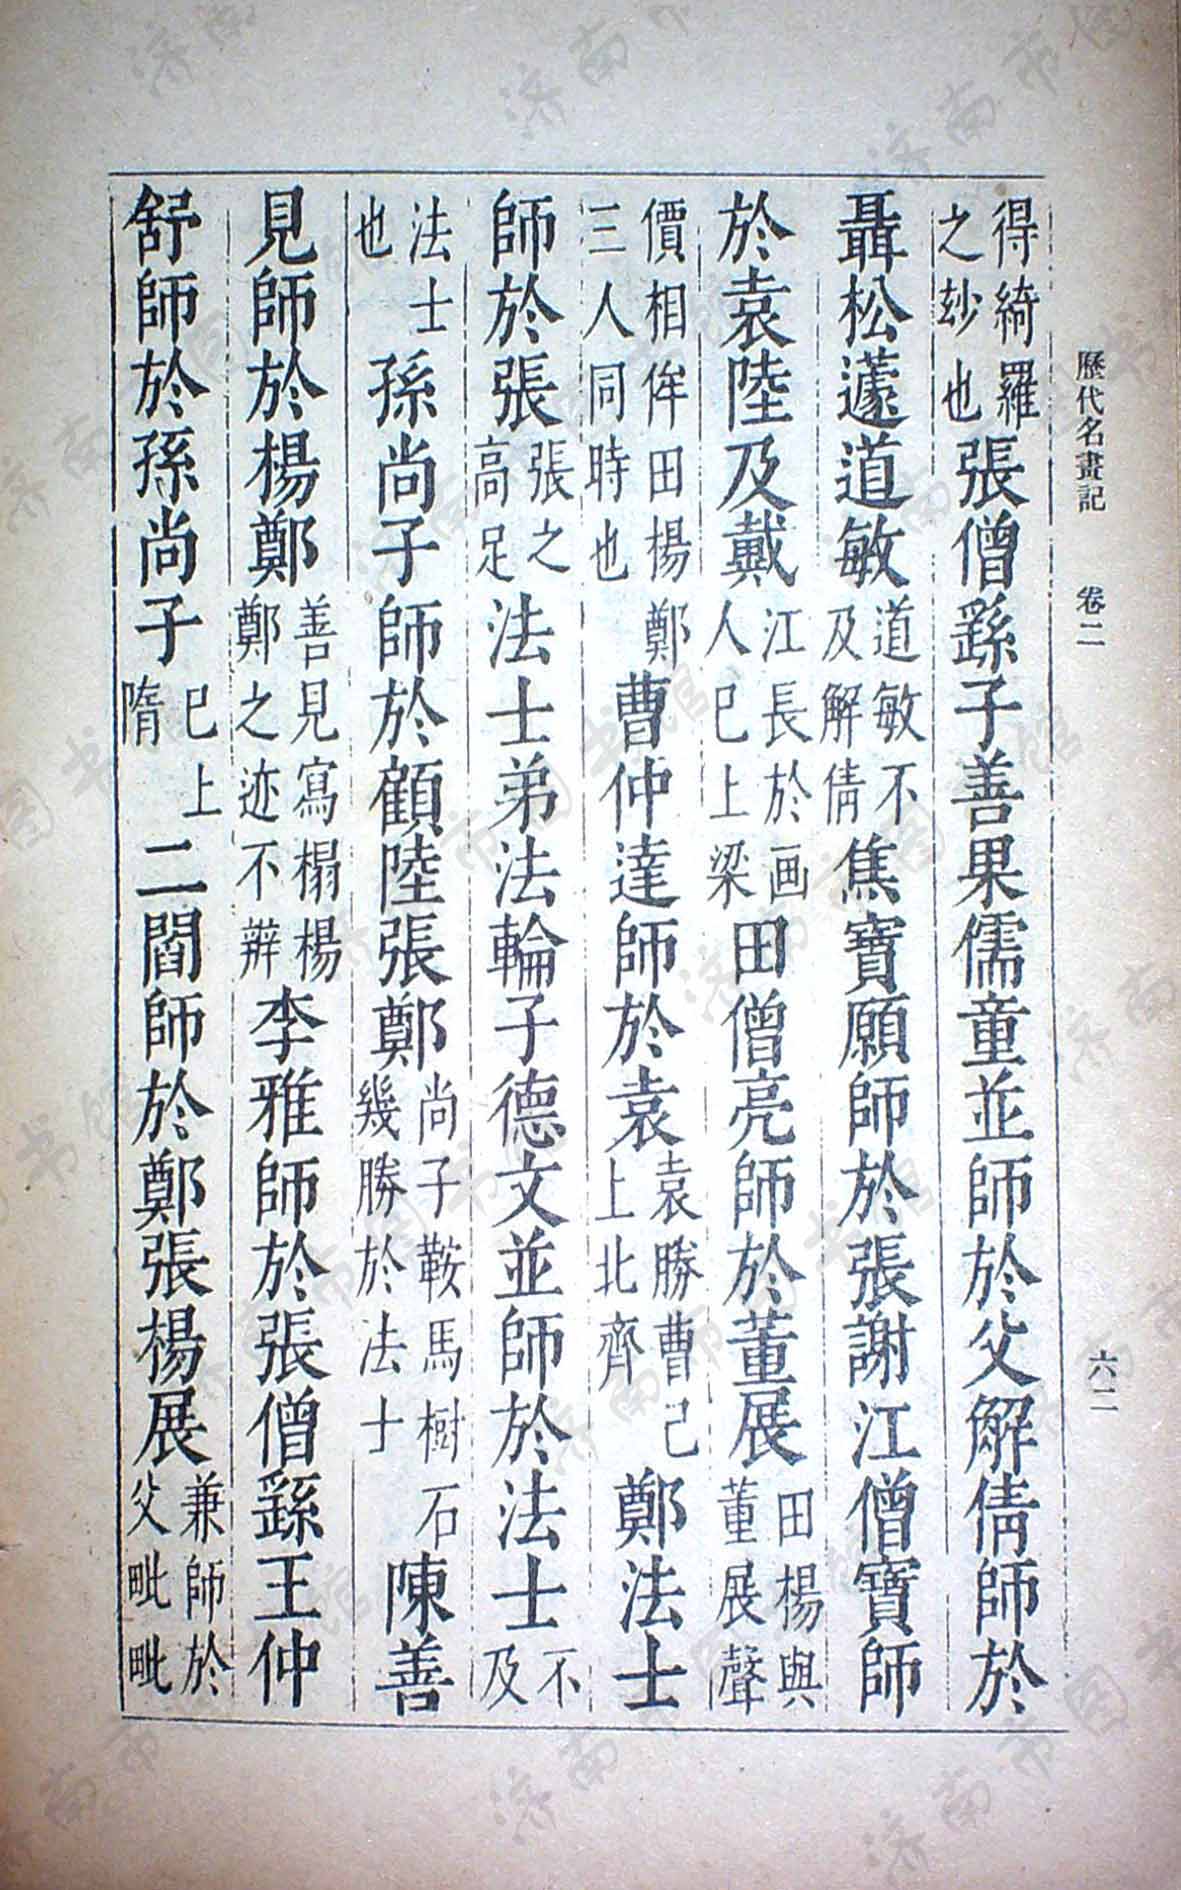 歷代名畫記　卷二　六二
得綺羅之玅也張僧繇子善果儒童並師於父解倩師於
聶松蘧道敏道敏不及解倩焦寶願師於張謝江僧寶師
於袁陸及戴江長於画人巳上梁田僧亮師於董展田楊與董展聲
價相侔田楊鄭三人同時也曹仲達師於袁袁勝曹己上北齊鄭法士
師於張張之高足法士弟法輪子德文並師於法士不及
法士也孫尚子師於顧陸張鄭尚子鞍馬樹石幾勝於法士陳善
見師於楊鄭善見寫榻楊鄭之迹不辨李雅師於張僧繇王仲
舒師於孫尚子巳上隋二閻師於鄭張楊展兼師於父毗毗
济南市图书馆